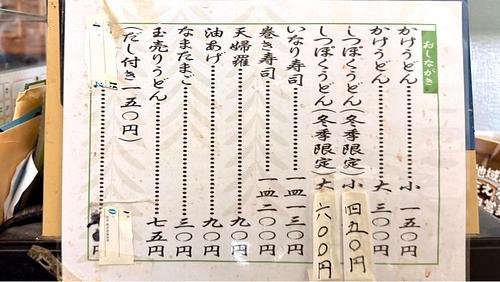 おしながき
かけうどん 小 一五〇円
かけうどん 大 三〇〇円
しっぽくうどん(冬季限定) 小 四五〇円
しっぽくうどん(冬季限定) 大 六〇〇円
いなり寿司 一皿 一三〇円
巻き寿司 一皿 二〇〇円
天婦羅 九〇円
油あげ 九〇円
なまたまご 三〇円
玉売りうどん 七五円
(だし付き一五〇円)
円